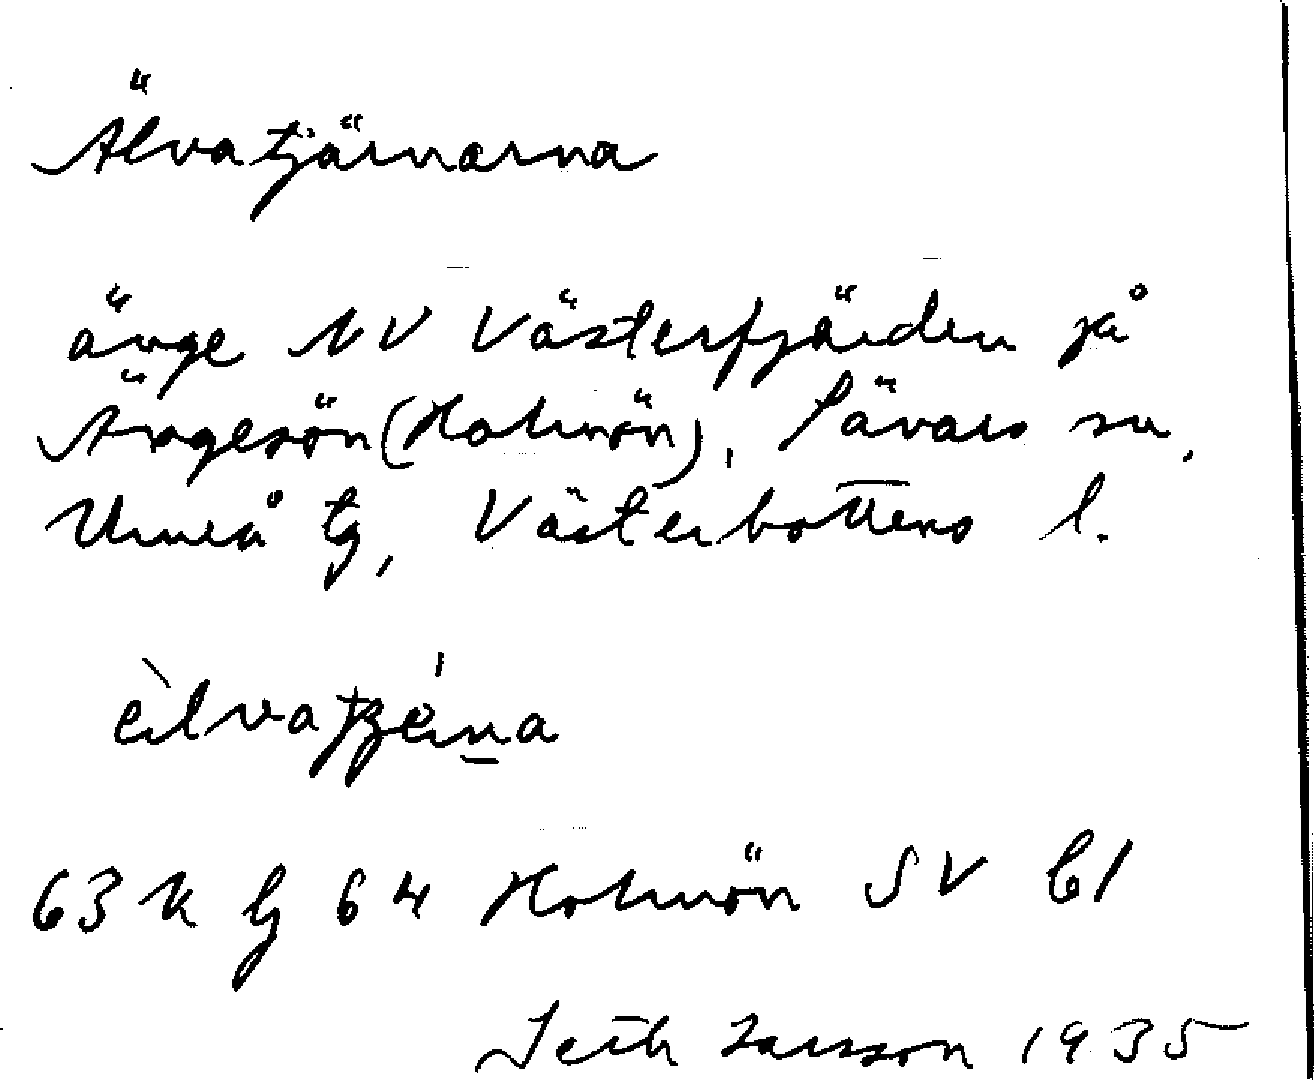 Älvatjärnarna
änge NV Västerfjärden på
Ängesön (Holmön), Sävars sn,
Umeå tg, Västerbottens l.
63 k Holmön SV bl
Seth Larsson 1935